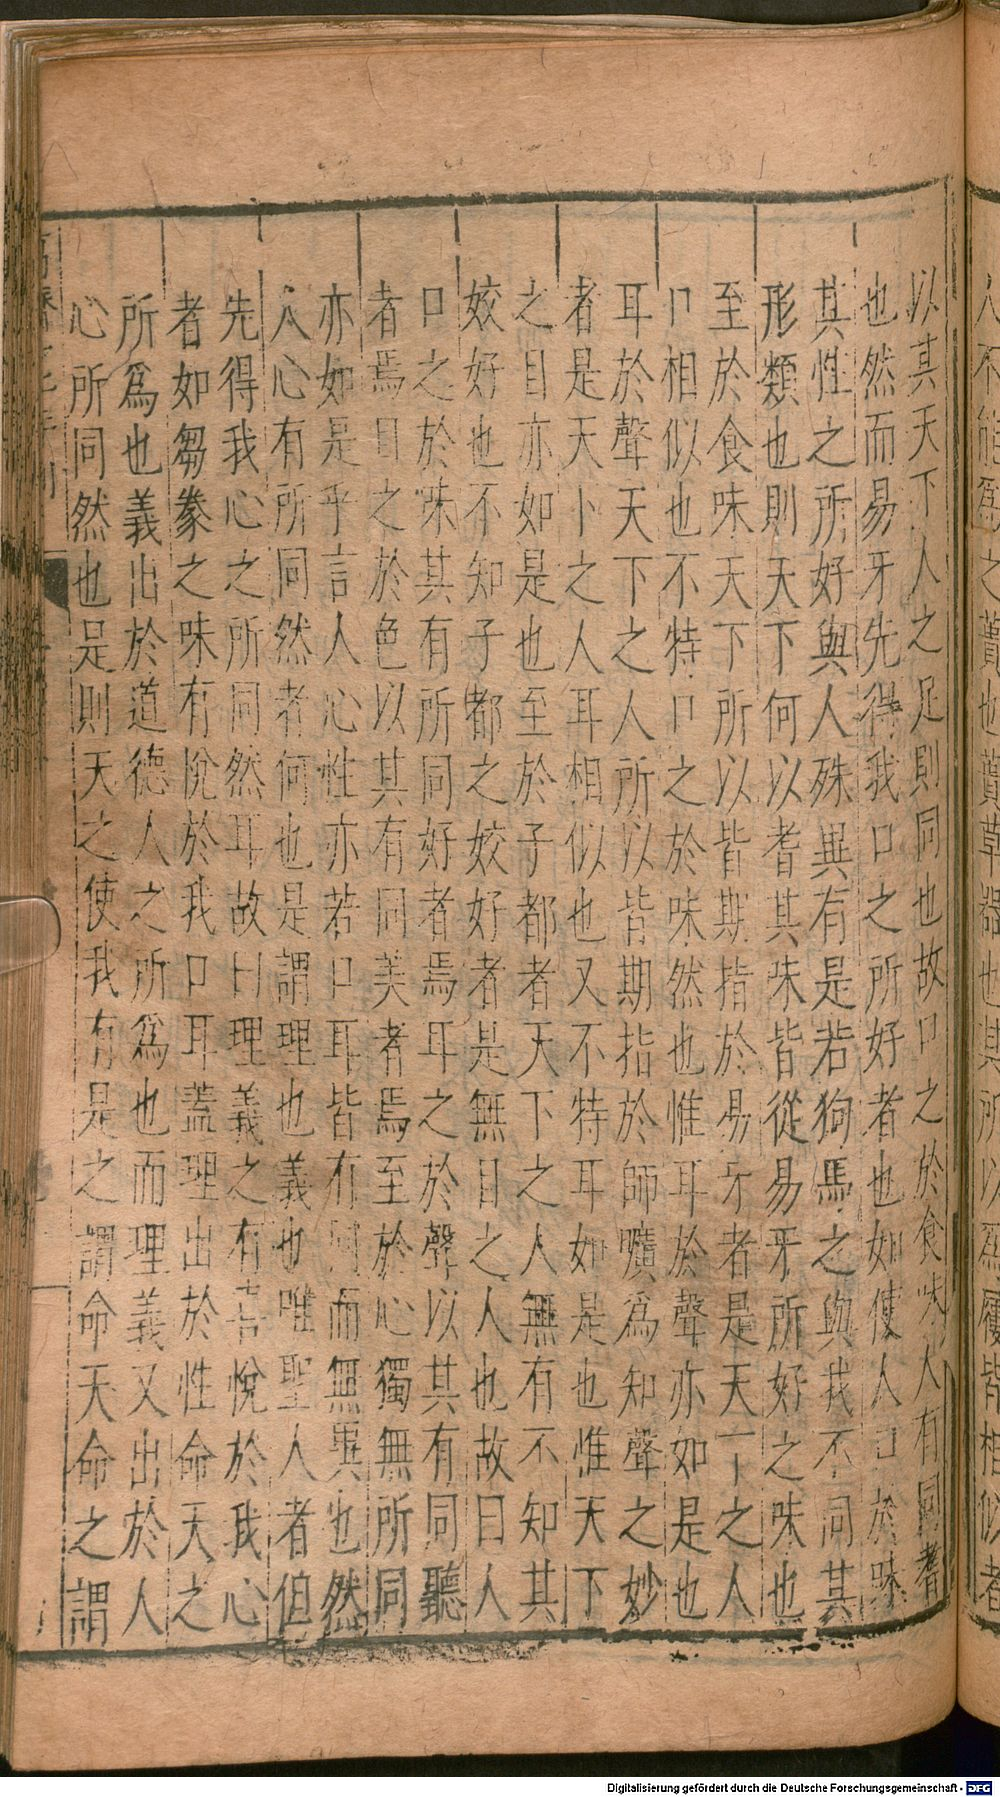 以其天下人之足則同也故口之於食味人有同耆
也然而易牙先得我口之所好者也如使人口於味
其性之所好與人殊異有是若狗馬之與我不同其
形類也則天下何以耆其味皆從易牙所好之味也
至於食味天下所以皆期指於易牙者是天下之人
口相似也不特口之於味然也惟耳於聲亦如是也
耳於聲天下之人所以皆期指於師曠為知聲之妙
者是天下之人耳相似也又不特耳如是也惟天下
之目亦如是也至於子都者天下之人無有不知其
姣好也不知子都之姣好者是無目之人也故曰人
口之於味其有所同好者焉耳之於聲以其有同聽
者焉目之於色以其有同美者焉至於心獨無所同
亦如是乎言人心性亦若口耳皆有同而無異也然
人心有所同然者何也是謂理也義也唯聖人者但
先得我心之所同然耳故曰理義之有喜悅於我心
者如芻豢之味有悅於我口耳蓋理出於性命天之
所為也義出於道德人之所為也而理義又出於人
心所同然也是則天之使我有是之謂命天命之謂
Digitalisierung gefördert durch die Deutsche Forschungsgemeinschaft - DFG